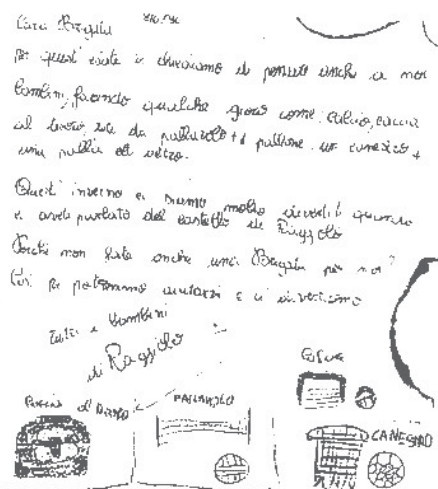 Cara Brigata
Per quest'estate vi chiediamo di pensare anche a noi
bambini, facendo qualche gioco come: calcio, caccia
al tesoro, rete da pallavolo + 1 pallone. un canestro +
una palla
Quest'inverno ci siamo molto divertiti quando
ci avete parlato del castello di Raggiolo
Perché non fate anche una Brigata per noi?
Così potremmo aiutarvi e ci divertiamo
Tutti i bambini
di Raggiolo
CALCIO
CACCIA al TESORO
PALLAVOLO
CANESTRO